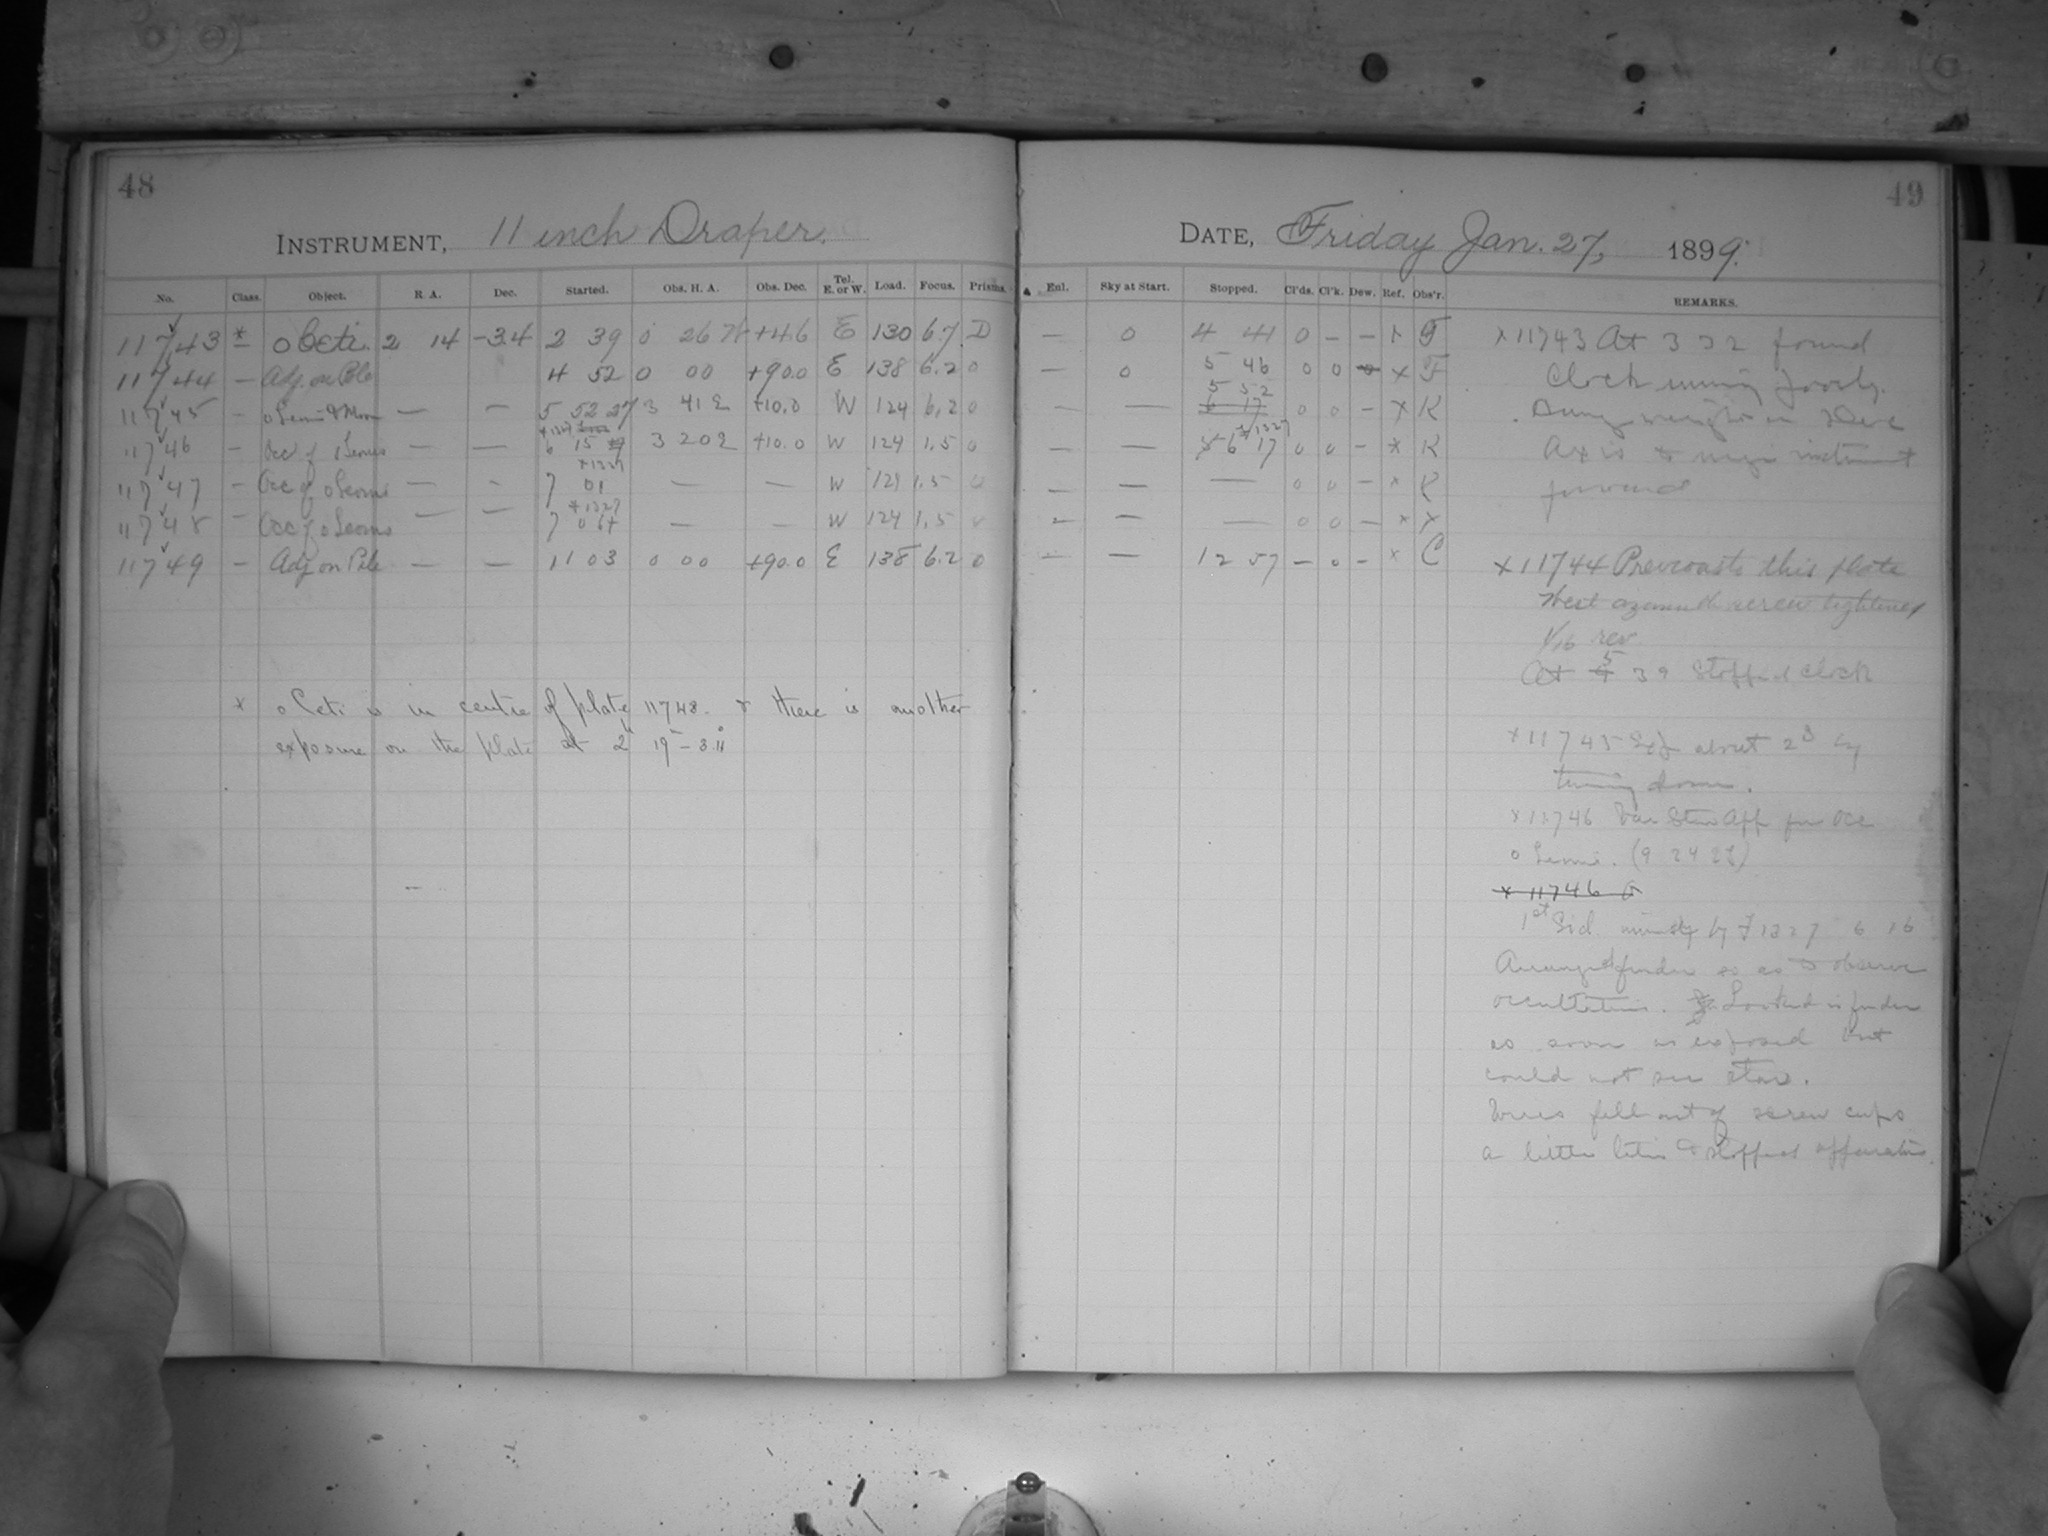 48
INSTRUMENT, 11 inch Draper.
No. Class. Object. R. A. Dec. Started. Obs. H. A. Obs. Dec. Tel. E. or W. Load. Focus. Prisms.
11743 * o Ceti. 2 14 -3.4 2 39 0 26 +4.6 E 130 6.7 D
11744 — Adj. on Pole 4 52 0 00 +90.0 E 138 6.2 0
11745 — o Leonis & Moon — — 5 52 27 3 41 2 +10.0 W 124 6.2 0
11746 — Occ of Leonis — — 6 15 3 20 2 +10.0 W 124 1.5 0
11747 — Occ of o Leonis — — 7 01 — — W 124 1.5
11748 — Occ of o Leonis — — 7 — — W 124 1.5
11749 — Adj on Pole — — 11 03 0 00 +90.0 E 138 6.2 0
x o Ceti is in centre of plate 11748. & there is another
exposure on the plate at 2h 19m -3.°
49
DATE, Friday Jan. 27, 1899.
Eul. Sky at Start. Stopped. Cl'ds. Cl'k. Dew. Ref. Obs'r. REMARKS.
— 0 4 41 0 - - x F
— 0 5 46 0 0 x F
— — 5 52 0 0 - x K
— — 6 17 0 0 - x K
— — — 0 0 - x K
— — — 0 0 — x
— — 12 57 - 0 - x C
x 11743 At 3 32 found
Clock running poorly.
Hung weight on Dec
Axis to urge instrument
forward
x 11744 Prev. to this plate
West azimuth screw tightened
1/16 rev
At 5 39 Stopped clock
x 11745 about 2s by
turning down.
x 11746 Var Star App for Occ
o Leonis. (9 24 22)
x 11746
1st Sid. by F 1327 6 16
Arranged finder so as to observe
occultation. Looked in finder
as soon as exposed but
could not see star.
Wires fell out of screw cups
a little later & stopped apparatus.